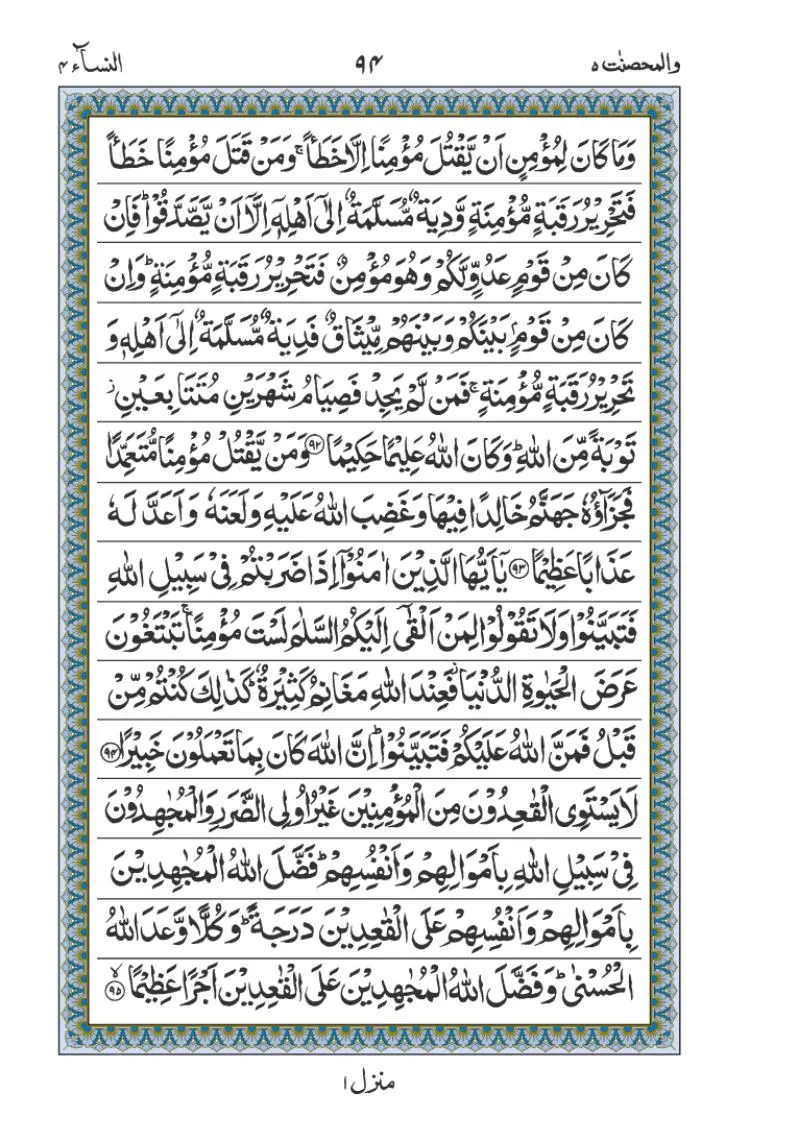 والمحصنٰت ٥
٩٤
النسآء ٤
وَمَا كَانَ لِمُؤْمِنٍ اَنْ يَّقْتُلَ مُؤْمِنًا اِلَّا خَطَـًٔا ۚ وَمَنْ قَتَلَ مُؤْمِنًا خَطَـًٔا
فَتَحْرِيْرُ رَقَبَةٍ مُّؤْمِنَةٍ وَّدِيَةٌ مُّسَلَّمَةٌ اِلٰٓى اَهْلِهٖٓ اِلَّآ اَنْ يَّصَّدَّقُوْا ؕ فَاِنْ
كَانَ مِنْ قَوْمٍ عَدُوٍّ لَّكُمْ وَهُوَ مُؤْمِنٌ فَتَحْرِيْرُ رَقَبَةٍ مُّؤْمِنَةٍ ؕ وَاِنْ
كَانَ مِنْ قَوْمٍۭ بَيْنَكُمْ وَبَيْنَهُمْ مِّيْثَاقٌ فَدِيَةٌ مُّسَلَّمَةٌ اِلٰٓى اَهْلِهٖ وَ
تَحْرِيْرُ رَقَبَةٍ مُّؤْمِنَةٍ ۚ فَمَنْ لَّمْ يَجِدْ فَصِيَامُ شَهْرَيْنِ مُتَتَابِعَيْنِ ؗ
تَوْبَةً مِّنَ اللّٰهِ ؕ وَكَانَ اللّٰهُ عَلِيْمًا حَكِيْمًا ﴿٩٢﴾ وَمَنْ يَّقْتُلْ مُؤْمِنًا مُّتَعَمِّدًا
فَجَزَآؤُهٗ جَهَنَّمُ خَالِدًا فِيْهَا وَغَضِبَ اللّٰهُ عَلَيْهِ وَلَعَنَهٗ وَاَعَدَّ لَهٗ
عَذَابًا عَظِيْمًا ﴿٩٣﴾ يٰٓاَيُّهَا الَّذِيْنَ اٰمَنُوْٓا اِذَا ضَرَبْتُمْ فِيْ سَبِيْلِ اللّٰهِ
فَتَبَيَّنُوْا وَلَا تَقُوْلُوْا لِمَنْ اَلْقٰٓى اِلَيْكُمُ السَّلٰمَ لَسْتَ مُؤْمِنًا ۚ تَبْتَغُوْنَ
عَرَضَ الْحَيٰوةِ الدُّنْيَا ؗ فَعِنْدَ اللّٰهِ مَغَانِمُ كَثِيْرَةٌ ؕ كَذٰلِكَ كُنْتُمْ مِّنْ
قَبْلُ فَمَنَّ اللّٰهُ عَلَيْكُمْ فَتَبَيَّنُوْا ؕ اِنَّ اللّٰهَ كَانَ بِمَا تَعْمَلُوْنَ خَبِيْرًا ﴿٩٤﴾
لَا يَسْتَوِى الْقٰعِدُوْنَ مِنَ الْمُؤْمِنِيْنَ غَيْرُ اُولِى الضَّرَرِ وَالْمُجٰهِدُوْنَ
فِيْ سَبِيْلِ اللّٰهِ بِاَمْوَالِهِمْ وَاَنْفُسِهِمْ ؕ فَضَّلَ اللّٰهُ الْمُجٰهِدِيْنَ
بِاَمْوَالِهِمْ وَاَنْفُسِهِمْ عَلَى الْقٰعِدِيْنَ دَرَجَةً ؕ وَكُلًّا وَّعَدَ اللّٰهُ
الْحُسْنٰى ؕ وَفَضَّلَ اللّٰهُ الْمُجٰهِدِيْنَ عَلَى الْقٰعِدِيْنَ اَجْرًا عَظِيْمًا ﴿٩٥﴾
منزل ١